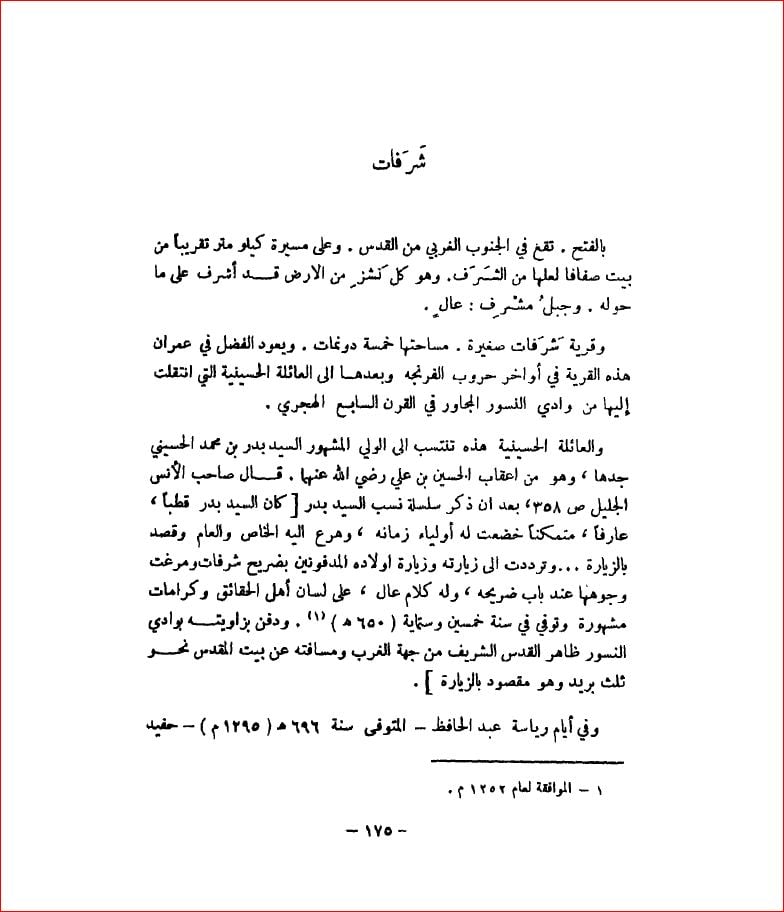 شَرَفات
بالفتح . تقع في الجنوب الغربي من القدس . وعلى مسيرة كيلو متر تقريباً من
بيت صفافا لعلها من الشَرَف. وهو كل نشزٍ من الارض قد أشرف على ما
حوله . وجبلُ مشْرِف : عالٍ .
وقرية شَرَفات صغيرة . مساحتها خمسة دونمات . ويعود الفضل في عمران
هذه القرية في أواخر حروب الفرنجه وبعدها الى العائلة الحسينية التي انتقلت
إليها من وادي النسور المجاور في القرن السابع الهجري .
والعائلة الحسينية هذه تنتسب الى الولي المشهور السيد بدر بن محمد الحسيني
جدها ، وهو من اعقاب الحسين بن علي رضي الله عنهما . قال صاحب الأنس
الجليل ص ٣٥٨، بعد ان ذكر سلسلة نسب السيد بدر [ كان السيد بدر قطباً ،
عارفاً ، متمكناً خضعت له أولياء زمانه ، وهرع اليه الخاص والعام وقصد
بالزيارة ... وترددت الى زيارته وزيارة اولاده المدفونين بضريح شرفات ومرغت
وجوهها عند باب ضريحه ، وله كلام عال ، على لسان أهل الحقائق وكرامات
مشهورة وتوفي في سنة خمسين وستماية ( ٦٥٠ ه ) (١) . ودفن بزاويته بوادي
النسور ظاهر القدس الشريف من جهة الغرب ومسافته عن بيت المقدس نحو
ثلث بريد وهو مقصود بالزيارة ] .
وفي أيام رياسة عبد الحافظ – المتوفى سنة ٦٩٦ ه ( ١٢٩٥ م ) – حفيد
١ – الموافقة لعام ١٢٥٢ م .
– ١٧٥ –